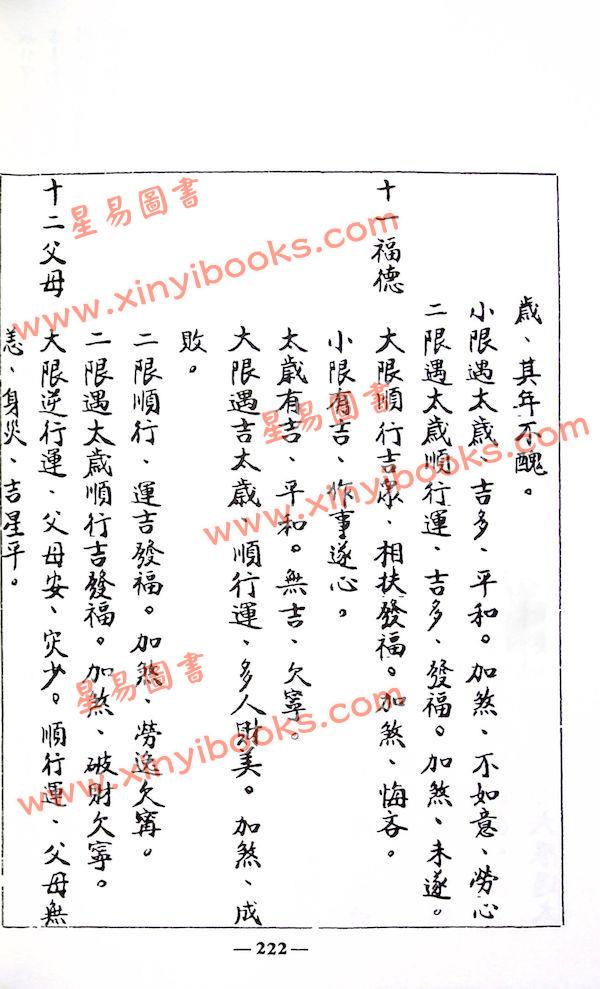 歲、其年不醜。
小限遇太歲、吉多、平和。加煞、不如意、勞心
二限遇太歲順行運、吉多、發福。加煞、未遂。
十一福德 大限順行吉衆、相扶發福。加煞、悔吝。
小限有吉、作事遂心。
太歲有吉、平和。無吉、欠寧。
大限遇吉太歲、順行運、多人財美。加煞、成
敗。
二限順行、運吉發福。加煞、勞逸欠寗。
二限遇太歲順行吉發福。加煞、破財欠寧。
十二父母 大限逆行運、父母安、災少。順行運、父母無
恙、身災、吉星平。
—222—
星易圖書
www.xinyibooks.com
星易圖書
www.xinyibooks.com
星易圖書
www.xinyibooks.com